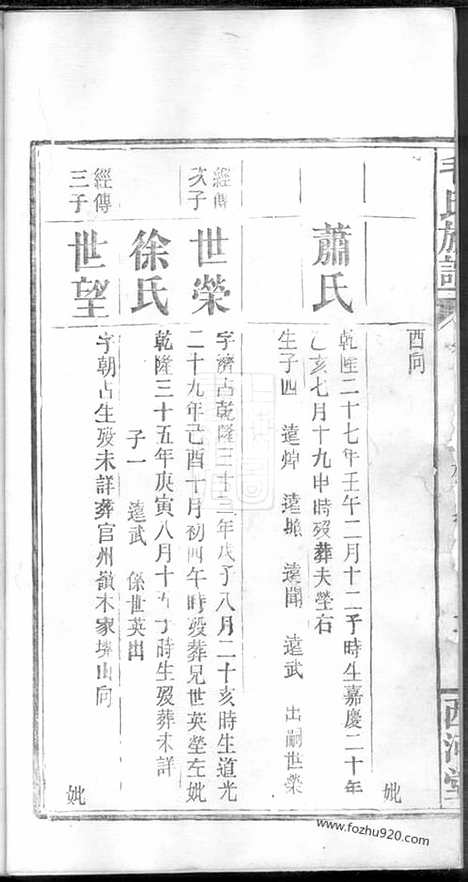 毛氏族譜
西河堂
酉向
妣
蕭氏
乾隆二十七年壬午二月十二子時生嘉慶二十年
乙亥七月十九申時歿葬夫塋右
生子四 遠焯 遠 遠聞 遠武 出嗣世榮
經傳
次子
世榮
字濟占乾隆三十三年戊子八月二十亥時生道光
二十九年己酉十月初四午時歿葬兄世英塋左妣
徐氏
乾隆三十五年庚寅八月十五丁時生歿葬未詳
子一 遠武 係世英出
經傳
三子
世望
字朝占生歿未詳葬官州嶺木家塝山向
妣
www.fozhu920.com